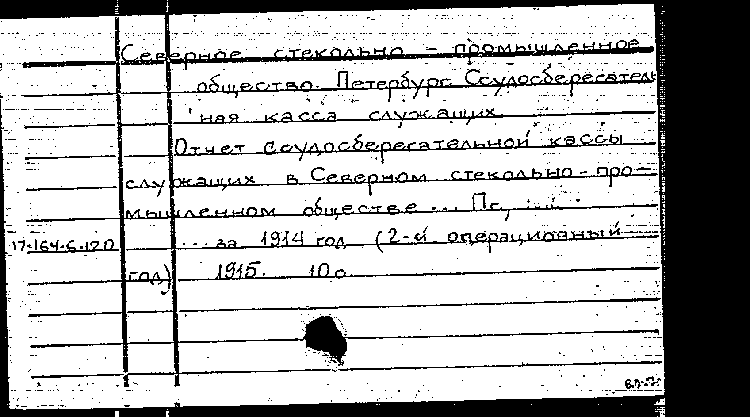 Северное стекольно - промышленное
общество. Петербург. Ссудосберегатель
ная касса служащих.
Отчет ссудосберегательной кассы
служащих в Северном стекольно-про-
мышленном обществе ... Пг, ......
17-164-6-120 ... за 1914 год (2-й операционный
год) 1915. 10 с.